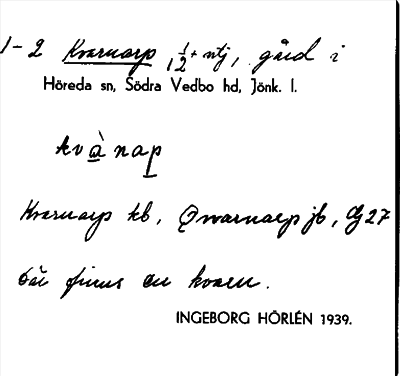 1-2 Kvarnarp, 1 1/2 + ntj, gård i
Höreda sn, Södra Vedbo hd, Jönk. l.
kvànap
Kvarnarp kb, Qwarnarp jb, Gj 27
Här finns en kvarn.
INGEBORG HÖRLÉN 1939.